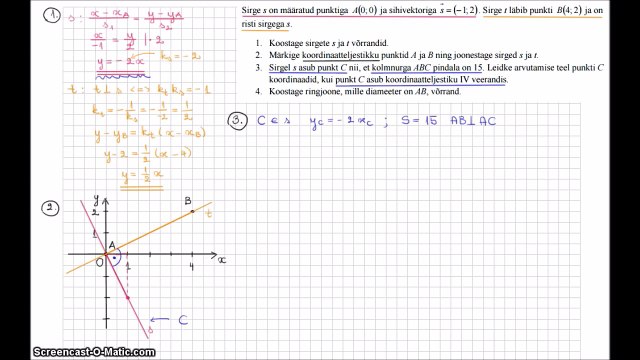 Sirge s on määratud punktiga A(0; 0) ja sihivektoriga s⃗ = (−1; 2). Sirge t läbib punkti B(4; 2) ja on
risti sirgega s.
1. Koostage sirgete s ja t võrrandid.
2. Märkige koordinaatteljestikku punktid A ja B ning joonestage sirged s ja t.
3. Sirgel s asub punkt C nii, et kolmnurga ABC pindala on 15. Leidke arvutamise teel punkti C
koordinaadid, kui punkt C asub koordinaatteljestiku IV veerandis.
4. Koostage ringjoone, mille diameeter on AB, võrrand.
1. s: (x − x_A)/s₁ = (y − y_A)/s₂
x/−1 = y/2 | · 2
y = −2x k_s = −2
t: t⊥s <=> k_t k_s = −1
k_t = −1/k_s = −1/−2 = 1/2
y − y_B = k_t (x − x_B)
y − 2 = 1/2 (x − 4)
y = 1/2 x
3. C ∈ s y_C = −2x_C ; S = 15 AB⊥AC
2
y
2
B
t
1
A
O
1
4
x
s
← C
Screencast-O-Matic.com